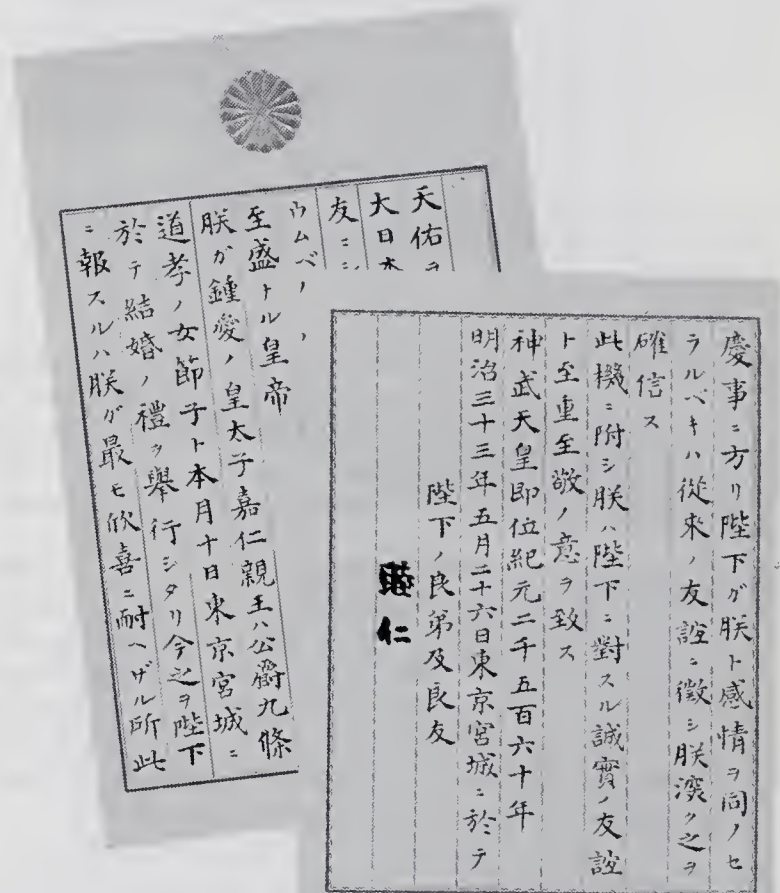 天佑ヲ
大日本
友ニ
ウムベ
至盛ナル皇帝
朕ガ鍾愛ノ皇太子嘉仁親王ハ公爵九條
道孝ノ女節子ト本月十日東京宮城ニ
於テ結婚ノ禮ヲ舉行シタリ今之ヲ陛下
ニ報スルハ朕ガ最モ欣喜ニ耐ヘザル所此
慶事ニ方リ陛下ガ朕ト感情ヲ同ノセ
ラルベキハ從来ノ友誼ニ徴シ朕深ク之ヲ
確信ス
此機ニ附シ朕ハ陛下ニ對スル誠實ノ友誼
ト至重至敬ノ意ヲ致ス
神武天皇即位紀元二千五百六十年
明治三十三年五月二十六日東京宮城ニ於テ
陛下ノ良弟及良友
睦仁